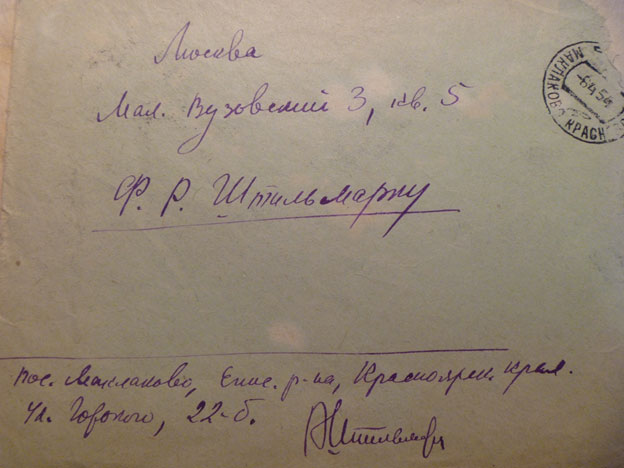 Москва
Мал. Вузовский 3, кв. 5
Ф. Р. Штильмарку
МАКЛАКОВО КРАСН
-6 4 54
пос. Маклаково, Енис. р-на, Красноярск. края.
Ул. Горького, 22-б.
РШтильмарк